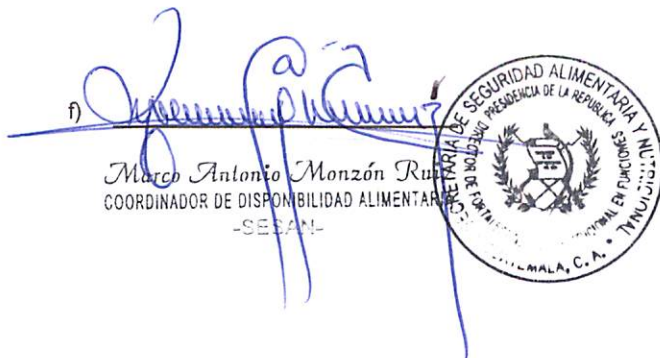 f)
Marco Antonio Monzón Ruiz
COORDINADOR DE DISPONIBILIDAD ALIMENTARIA
-SESAN-
SECRETARIA DE SEGURIDAD ALIMENTARIA Y NUTRICIONAL
PRESIDENCIA DE LA REPUBLICA
DIRECTOR DE EN FUNCIONES
GUATEMALA, C. A.